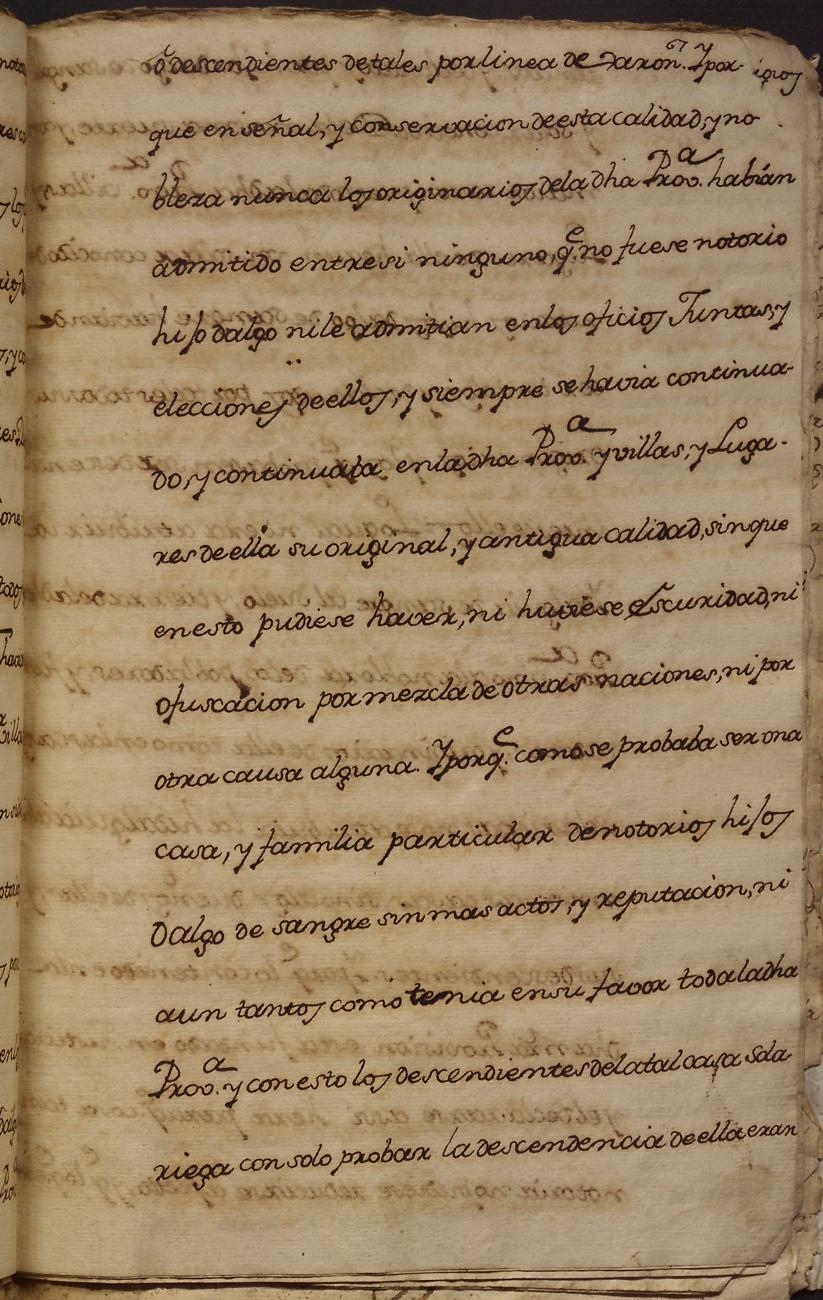 ô descendientes de tales por linea de varon. Y por-
que en señal, y conservacion de esta calidad, y no
bleza nunca los originarios de la dha Prov.ª habian
admitido entre si ninguno, q.e no fuese notorio
hijo dalgo ni le admitian en los oficios Juntas, y
elecciones de ellos, y siempre se havia continua-
do, y continuaba en la dha Prov.ª y villas, y Luga-
res de ella su original, y antigua calidad, sin que
en esto pudiese haver, ni haviese escuridad, ni
ofuscacion por mezcla de otras naciones, ni por
otra causa alguna. Y porq.e como se probaba ser una
casa, y familia particular de notorios hijos
Dalgo de sangre sin mas actos, y reputacion, ni
aun tantos como tenia en su favor toda la dha
Prov.ª y con esto los descendientes de la tal casa Sola-
riega con solo probar la descendencia de ella eran